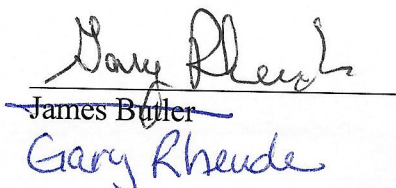 Gary Rheude
James Butler
Gary Rheude